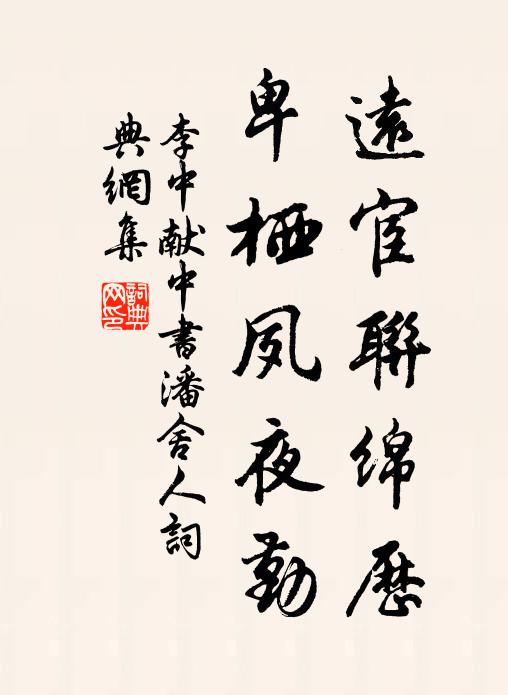 遠宦聯綿歷
卑栖夙夜勤
李中献中書潘舍人詞
典網集
詞典网印